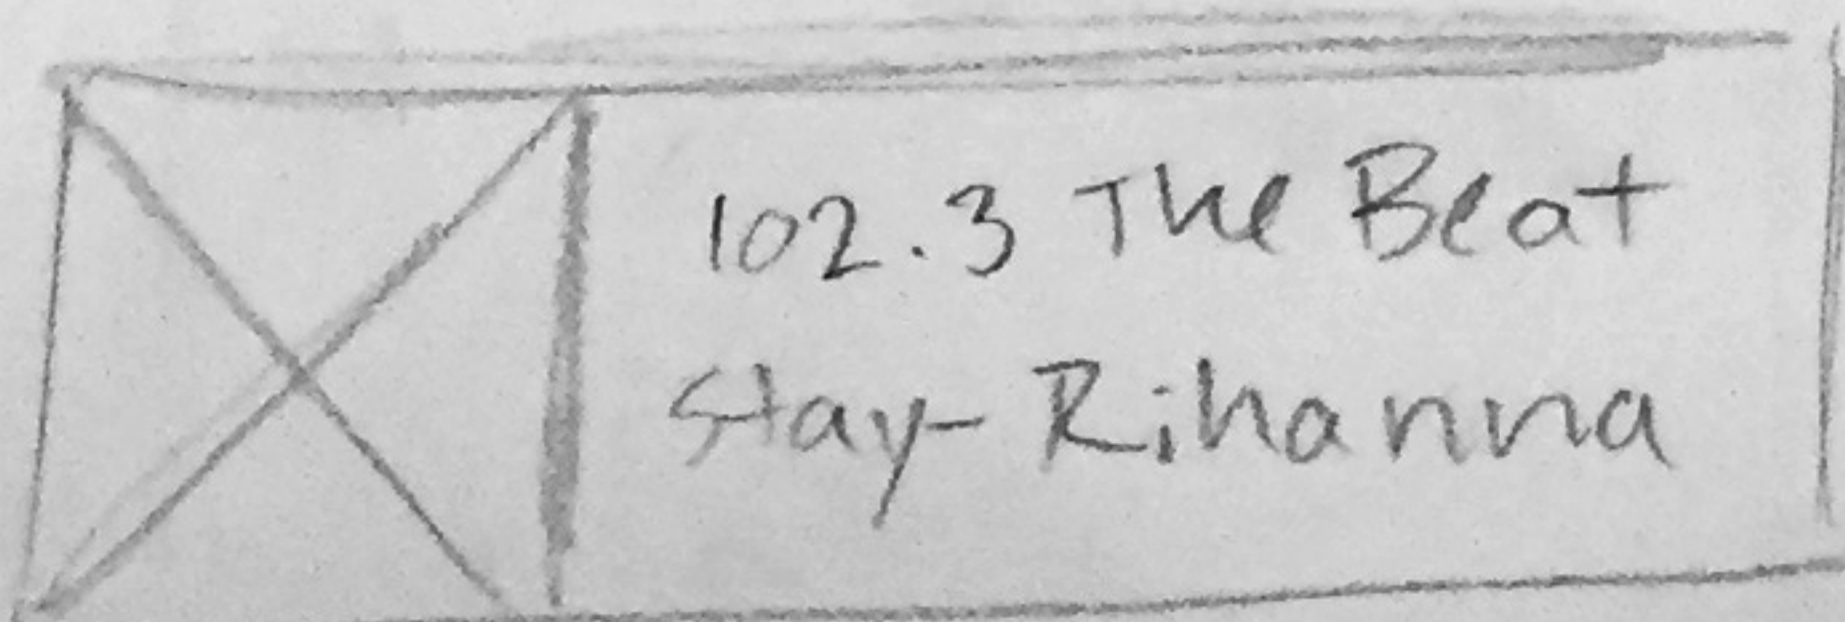 102.3 The Beat
Stay- Rihanna